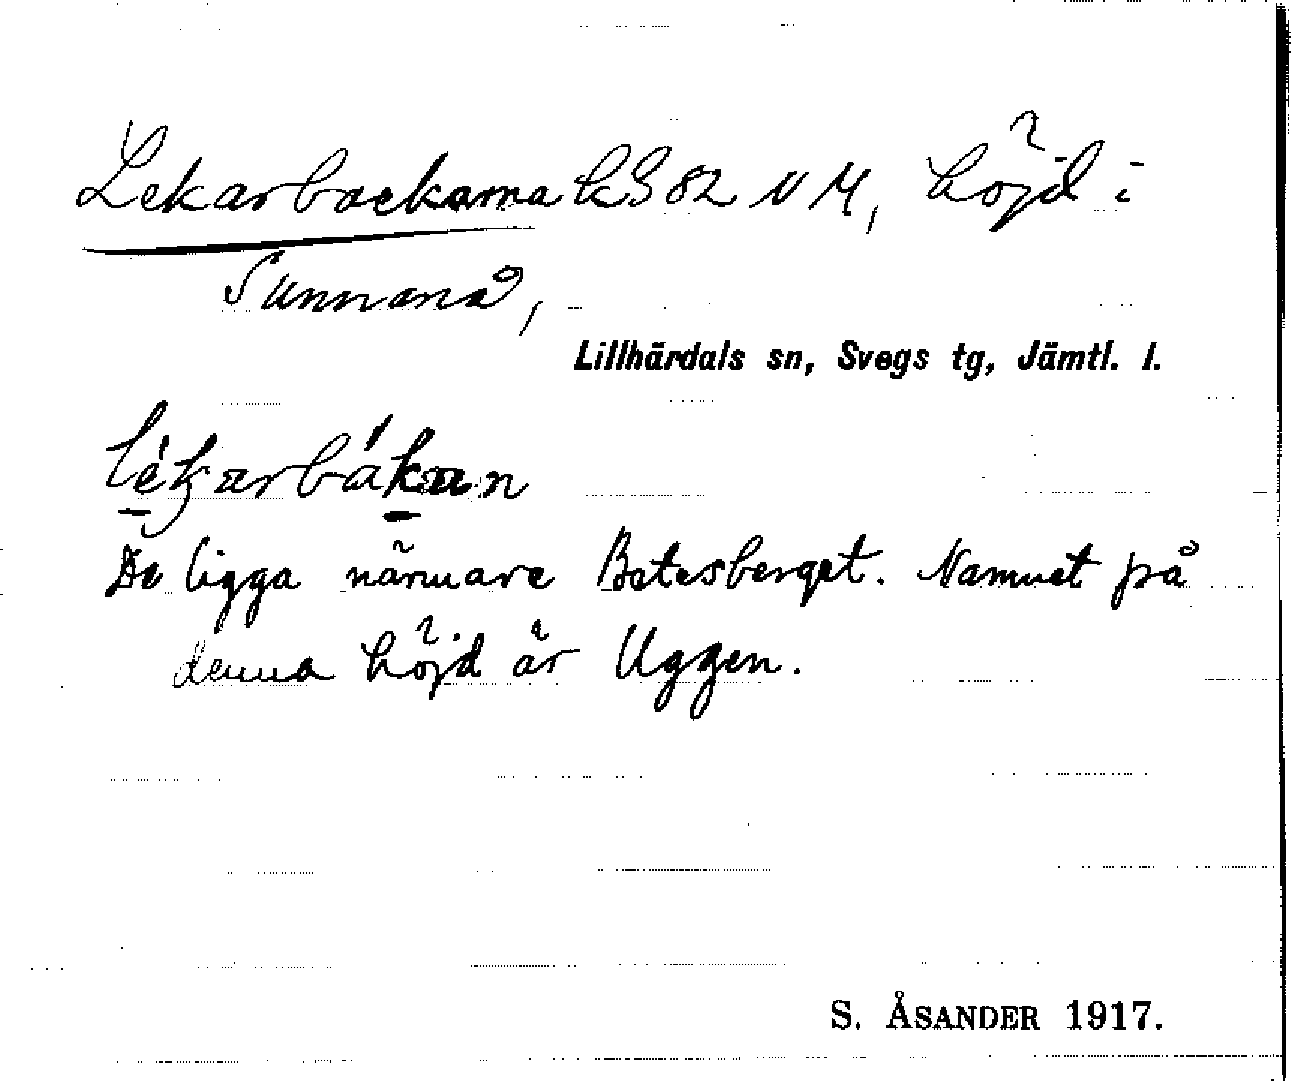 Lekarbackarna kS 82 NM, höjd i
Sunnanå,
Lillhärdals sn, Svegs tg, Jämtl. l.
lékarbákan
De ligga närmare Botesberget. Namnet på
denna höjd är Uggen.
S. ÅSANDER 1917.